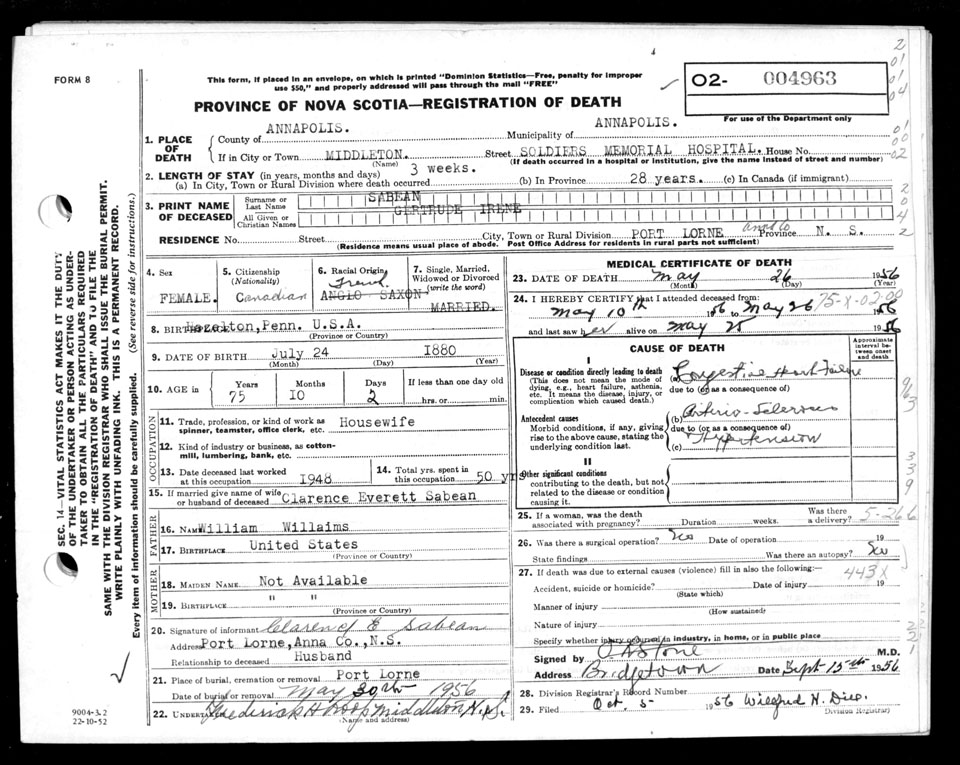 FORM 8
This form, if placed in an envelope, on which is printed "Dominion Statistics—Free, penalty for improper
use $50," and properly addressed will pass through the mail "FREE"
02- 004963
For use of the Department only
PROVINCE OF NOVA SCOTIA—REGISTRATION OF DEATH
1. PLACE OF DEATH
County of ANNAPOLIS. Municipality of ANNAPOLIS.
If in City or Town MIDDLETON. Street SOLDIERS MEMORIAL HOSPITAL. House No.
(Name) (If death occurred in a hospital or institution, give the name instead of street and number)
2. LENGTH OF STAY (in years, months and days)
(a) In City, Town or Rural Division where death occurred 3 weeks. (b) In Province 28 years. (c) In Canada (if immigrant)
3. PRINT NAME OF DECEASED
Surname or Last Name SABEAN
All Given or Christian Names GERTRUDE IRENE
RESIDENCE No. Street City, Town or Rural Division PORT LORNE Anna Co Province N. S.
(Residence means usual place of abode. Post Office Address for residents in rural parts not sufficient)
4. Sex FEMALE.
5. Citizenship (Nationality) Canadian
6. Racial Origin ANGLO SAXON
7. Single, Married, Widowed or Divorced (write the word) MARRIED.
8. BIRTHPLACE Hazelton, Penn. U.S.A.
(Province or Country)
9. DATE OF BIRTH July 24 1880
(Month) (Day) (Year)
10. AGE in Years 75 Months 10 Days 2 If less than one day old hrs. or min.
OCCUPATION
11. Trade, profession, or kind of work as spinner, teamster, office clerk, etc. Housewife
12. Kind of industry or business, as cotton-mill, lumbering, bank, etc.
13. Date deceased last worked at this occupation 1948
14. Total yrs. spent in this occupation 50 yrs
15. If married give name of wife or husband of deceased Clarence Everett Sabean
FATHER
16. NAME William Willaims
17. BIRTHPLACE United States
(Province or Country)
MOTHER
18. MAIDEN NAME Not Available
19. BIRTHPLACE " "
(Province or Country)
20. Signature of informant Clarence E Sabean
Address Port Lorne, Anna Co., N.S.
Relationship to deceased Husband
21. Place of burial, cremation or removal Port Lorne
Date of burial or removal May 30th 1956
22. UNDERTAKER Frederick H Roop Middleton N.S.
(Name and address)
MEDICAL CERTIFICATE OF DEATH
23. DATE OF DEATH May 26 1956
(Month) (Day) (Year)
24. I HEREBY CERTIFY that I attended deceased from:
May 10th 1956 to May 26 1956
75-X-02-00
and last saw her alive on May 25 1956
CAUSE OF DEATH
Approximate interval between onset and death
I
Disease or condition directly leading to death
(This does not mean the mode of dying, e.g., heart failure, asthenia, etc. It means the disease, injury, or complication which caused death.)
(a) Congestive Heart Failure
due to (or as a consequence of)
Antecedent causes
Morbid conditions, if any, giving rise to the above cause, stating the underlying condition last.
(b) Arterio-Sclerosis
due to (or as a consequence of)
(c) Hypertension
II
Other significant conditions
contributing to the death, but not related to the disease or condition causing it.
25. If a woman, was the death associated with pregnancy? Duration weeks. Was there a delivery?
5-266
26. Was there a surgical operation? No Date of operation 19
State findings Was there an autopsy? No
27. If death was due to external causes (violence) fill in also the following:—
443X
Accident, suicide or homicide? Date of injury 19
(State which)
Manner of injury
(How sustained)
Nature of injury
Specify whether injury occurred in industry, in home, or in public place
Signed by M.D.
Address Bridgetown Date Sept 15th 1956
28. Division Registrar's Record Number
29. Filed Oct. 5 1956 Wilfred H.
Division Registrar
SEC. 14—VITAL STATISTICS ACT MAKES IT THE DUTY
OF THE UNDERTAKER OR PERSON ACTING AS UNDER-
TAKER TO OBTAIN ALL THE PARTICULARS REQUIRED
IN THE "REGISTRATION OF DEATH" AND TO FILE THE
SAME WITH THE DIVISION REGISTRAR WHO SHALL ISSUE THE BURIAL PERMIT.
WRITE PLAINLY WITH UNFADING INK. THIS IS A PERMANENT RECORD.
Every item of information should be carefully supplied. (See reverse side for instructions.)
9004-3.2
22-10-52